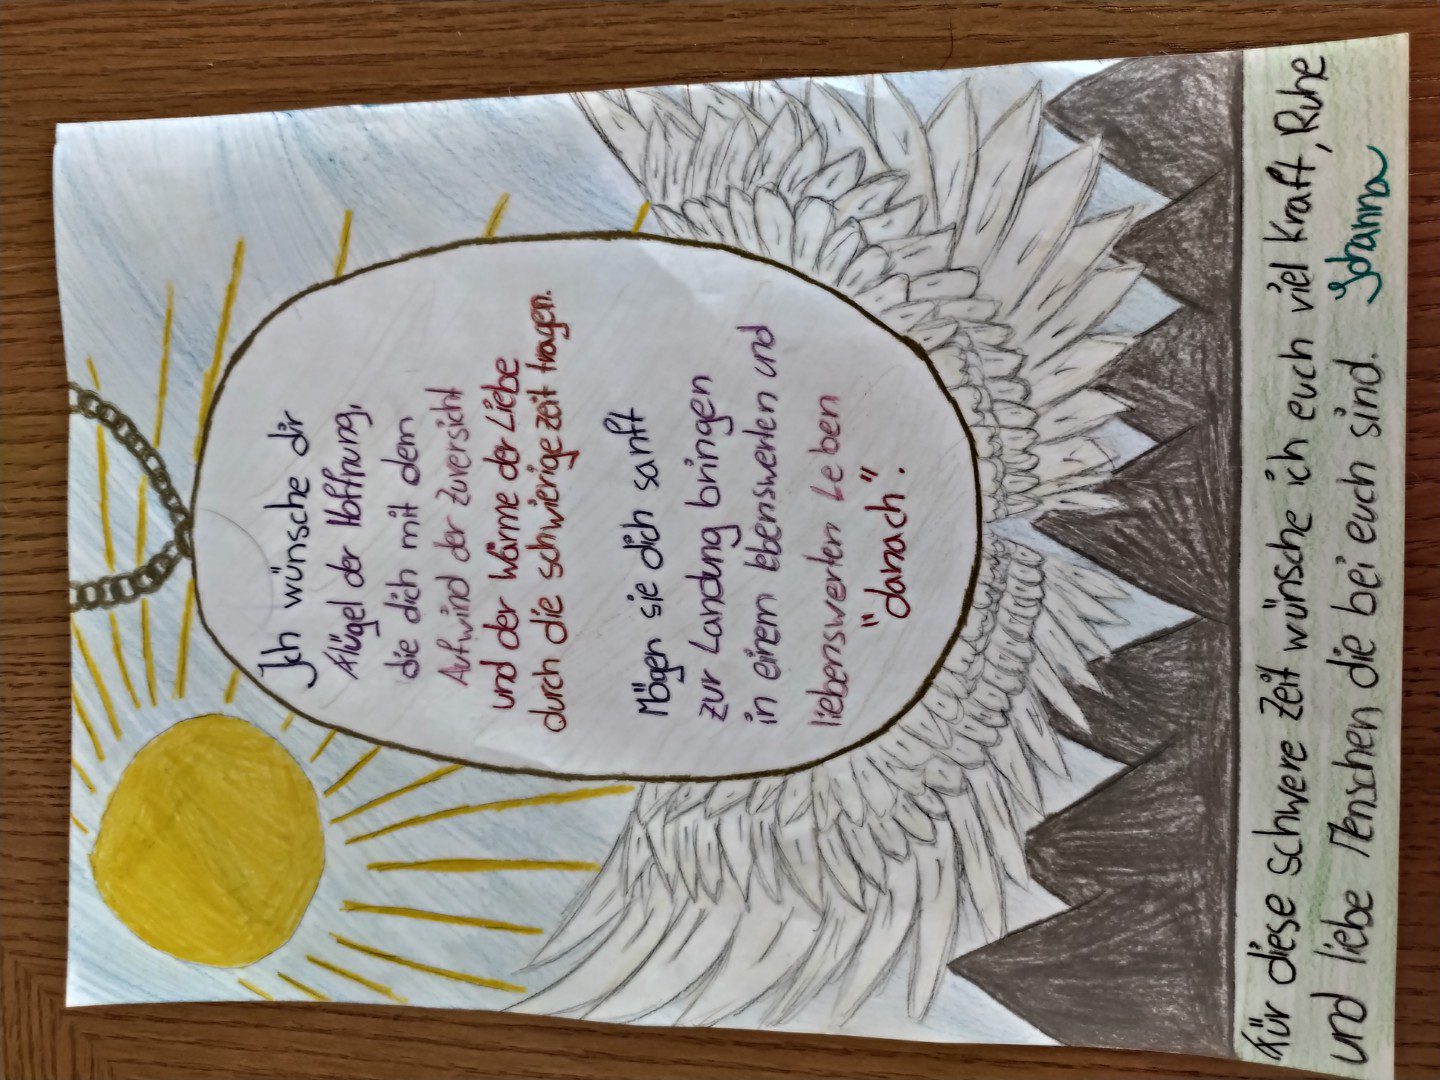 Ich wünsche dir
Flügel der Hoffnung,
die dich mit dem
Aufwind der Zuversicht
und der Wärme der Liebe
durch die schwierige Zeit tragen.
Mögen sie dich sanft
zur Landung bringen
in einem lebenswerten und
liebenswerten Leben
"danach".
Für diese schwere Zeit wünsche ich euch viel Kraft, Ruhe
und liebe Menschen die bei euch sind. Johanna